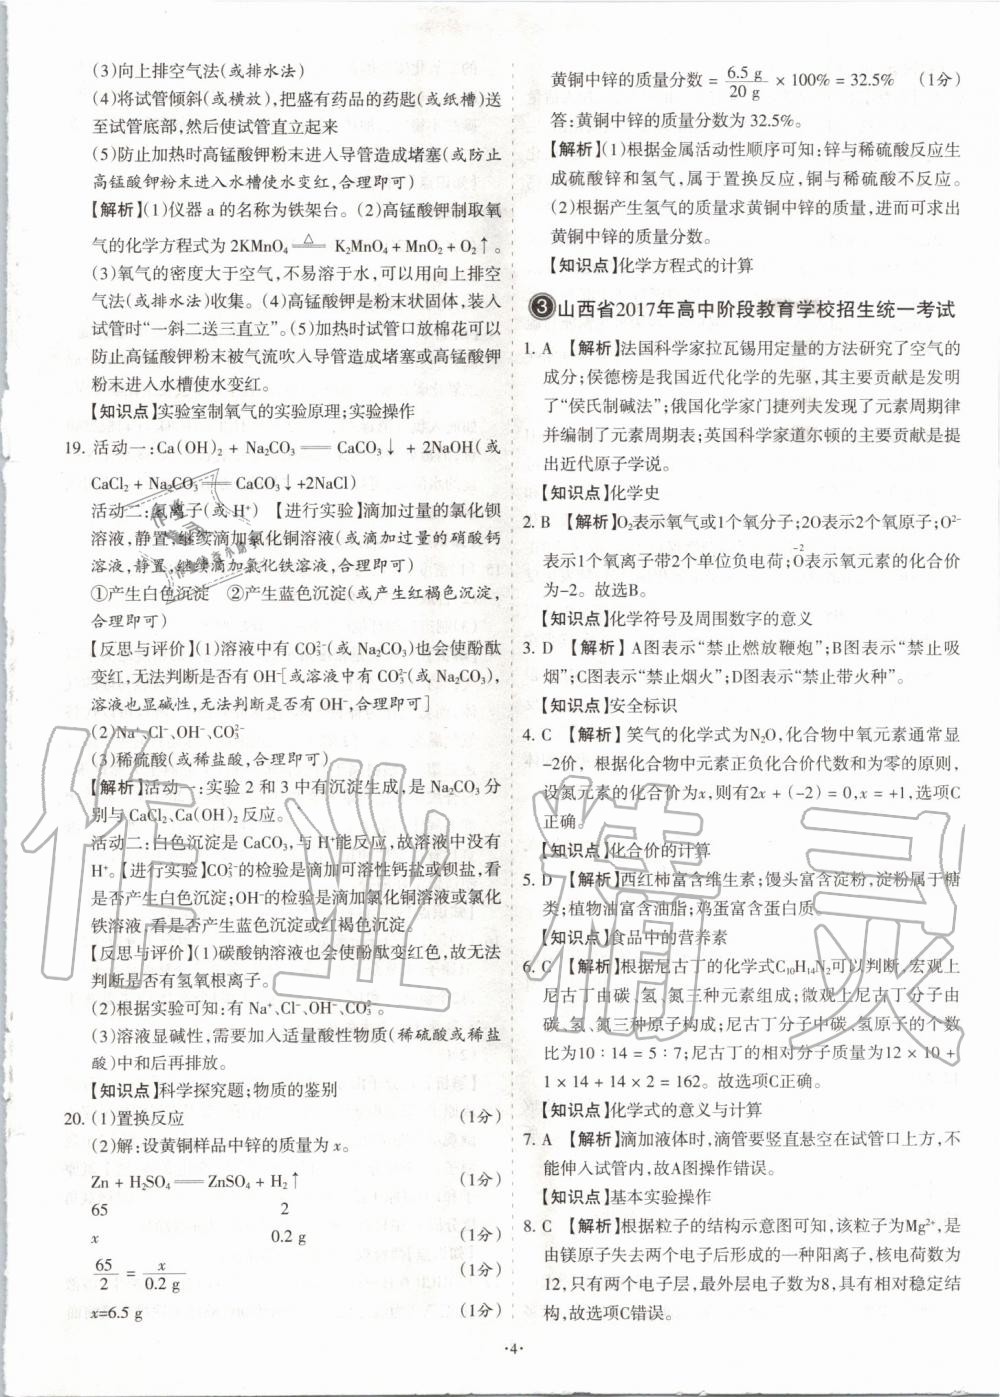 (3)向上排空气法(或排水法)
(4)将试管倾斜(或横放),把盛有药品的药匙(或纸槽)送
至试管底部,然后使试管直立起来
(5)防止加热时高锰酸钾粉末进入导管造成堵塞(或防止
高锰酸钾粉末进入水槽使水变红,合理即可)
【解析】(1)仪器 a 的名称为铁架台。(2)高锰酸钾制取氧
气的化学方程式为 2KMnO₄ ≜ K₂MnO₄ + MnO₂ + O₂↑。
(3)氧气的密度大于空气,不易溶于水,可以用向上排空
气法(或排水法)收集。(4)高锰酸钾是粉末状固体,装入
试管时“一斜二送三直立”。(5)加热时试管口放棉花可以
防止高锰酸钾粉末被气流吹入导管造成堵塞或高锰酸钾
粉末进入水槽使水变红。
【知识点】实验室制氧气的实验原理;实验操作
19. 活动一:Ca(OH)₂ + Na₂CO₃ ══ CaCO₃↓ + 2NaOH(或
CaCl₂ + Na₂CO₃ ══ CaCO₃↓+2NaCl)
活动二:氢离子(或 H⁺) 【进行实验】滴加过量的氯化钡
溶液,静置,继续滴加氯化铜溶液(或滴加过量的硝酸钙
溶液,静置,继续滴加氯化铁溶液,合理即可)
①产生白色沉淀 ②产生蓝色沉淀(或产生红褐色沉淀,
合理即可)
【反思与评价】(1)溶液中有 CO₃²⁻(或 Na₂CO₃)也会使酚酞
变红,无法判断是否有 OH⁻[或溶液中有 CO₃²⁻(或 Na₂CO₃),
溶液也显碱性,无法判断是否有 OH⁻,合理即可]
(2)Na⁺、Cl⁻、OH⁻、CO₃²⁻
(3)稀硫酸(或稀盐酸,合理即可)
【解析】活动一:实验 2 和 3 中有沉淀生成,是 Na₂CO₃ 分
别与 CaCl₂、Ca(OH)₂ 反应。
活动二:白色沉淀是 CaCO₃,与 H⁺能反应,故溶液中没有
H⁺。【进行实验】CO₃²⁻的检验是滴加可溶性钙盐或钡盐,看
是否产生白色沉淀;OH⁻的检验是滴加氯化铜溶液或氯化
铁溶液,看是否产生蓝色沉淀或红褐色沉淀。
【反思与评价】(1)碳酸钠溶液也会使酚酞变红色,故无法
判断是否有氢氧根离子。
(2)根据实验可知:有 Na⁺、Cl⁻、OH⁻、CO₃²⁻。
(3)溶液显碱性,需要加入适量酸性物质(稀硫酸或稀盐
酸)中和后再排放。
【知识点】科学探究题;物质的鉴别
20. (1)置换反应 (1分)
(2)解:设黄铜样品中锌的质量为 x。
Zn + H₂SO₄ ══ ZnSO₄ + H₂↑ (1分)
65 2
x 0.2 g (1分)
65/2 = x/0.2 g (1分)
x=6.5 g (1分)
黄铜中锌的质量分数 = 6.5 g/20 g × 100% = 32.5% (1分)
答:黄铜中锌的质量分数为 32.5%。
【解析】(1)根据金属活动性顺序可知:锌与稀硫酸反应生
成硫酸锌和氢气,属于置换反应,铜与稀硫酸不反应。
(2)根据产生氢气的质量求黄铜中锌的质量,进而可求出
黄铜中锌的质量分数。
【知识点】化学方程式的计算
3 山西省2017年高中阶段教育学校招生统一考试
1. A 【解析】法国科学家拉瓦锡用定量的方法研究了空气的
成分;侯德榜是我国近代化学的先驱,其主要贡献是发明
了“侯氏制碱法”;俄国化学家门捷列夫发现了元素周期律
并编制了元素周期表;英国科学家道尔顿的主要贡献是提
出近代原子学说。
【知识点】化学史
2. B 【解析】O₂表示氧气或1个氧分子;2O表示2个氧原子;O²⁻
表示1个氧离子带2个单位负电荷;O(上标−2)表示氧元素的化合价
为-2。故选B。
【知识点】化学符号及周围数字的意义
3. D 【解析】A图表示“禁止燃放鞭炮”;B图表示“禁止吸
烟”;C图表示“禁止烟火”;D图表示“禁止带火种”。
【知识点】安全标识
4. C 【解析】笑气的化学式为N₂O,化合物中氧元素通常显
-2价,根据化合物中元素正负化合价代数和为零的原则,
设氮元素的化合价为x,则有2x + (-2) = 0,x = +1,选项C
正确。
【知识点】化合价的计算
5. D 【解析】西红柿富含维生素;馒头富含淀粉,淀粉属于糖
类;植物油富含油脂;鸡蛋富含蛋白质。
【知识点】食品中的营养素
6. C 【解析】根据尼古丁的化学式C₁₀H₁₄N₂可以判断,宏观上
尼古丁由碳、氢、氮三种元素组成;微观上尼古丁分子由
碳、氢、氮三种原子构成;尼古丁分子中碳、氢原子的个数
比为10∶14 = 5∶7;尼古丁的相对分子质量为12 × 10 +
1 × 14 + 14 × 2 = 162。故选项C正确。
【知识点】化学式的意义与计算
7. A 【解析】滴加液体时,滴管要竖直悬空在试管口上方,不
能伸入试管内,故A图操作错误。
【知识点】基本实验操作
8. C 【解析】根据粒子的结构示意图可知,该粒子为Mg²⁺,是
由镁原子失去两个电子后形成的一种阳离子,核电荷数为
12,只有两个电子层,最外层电子数为8,具有相对稳定结
构,故选项C错误。
·4·
作业精灵